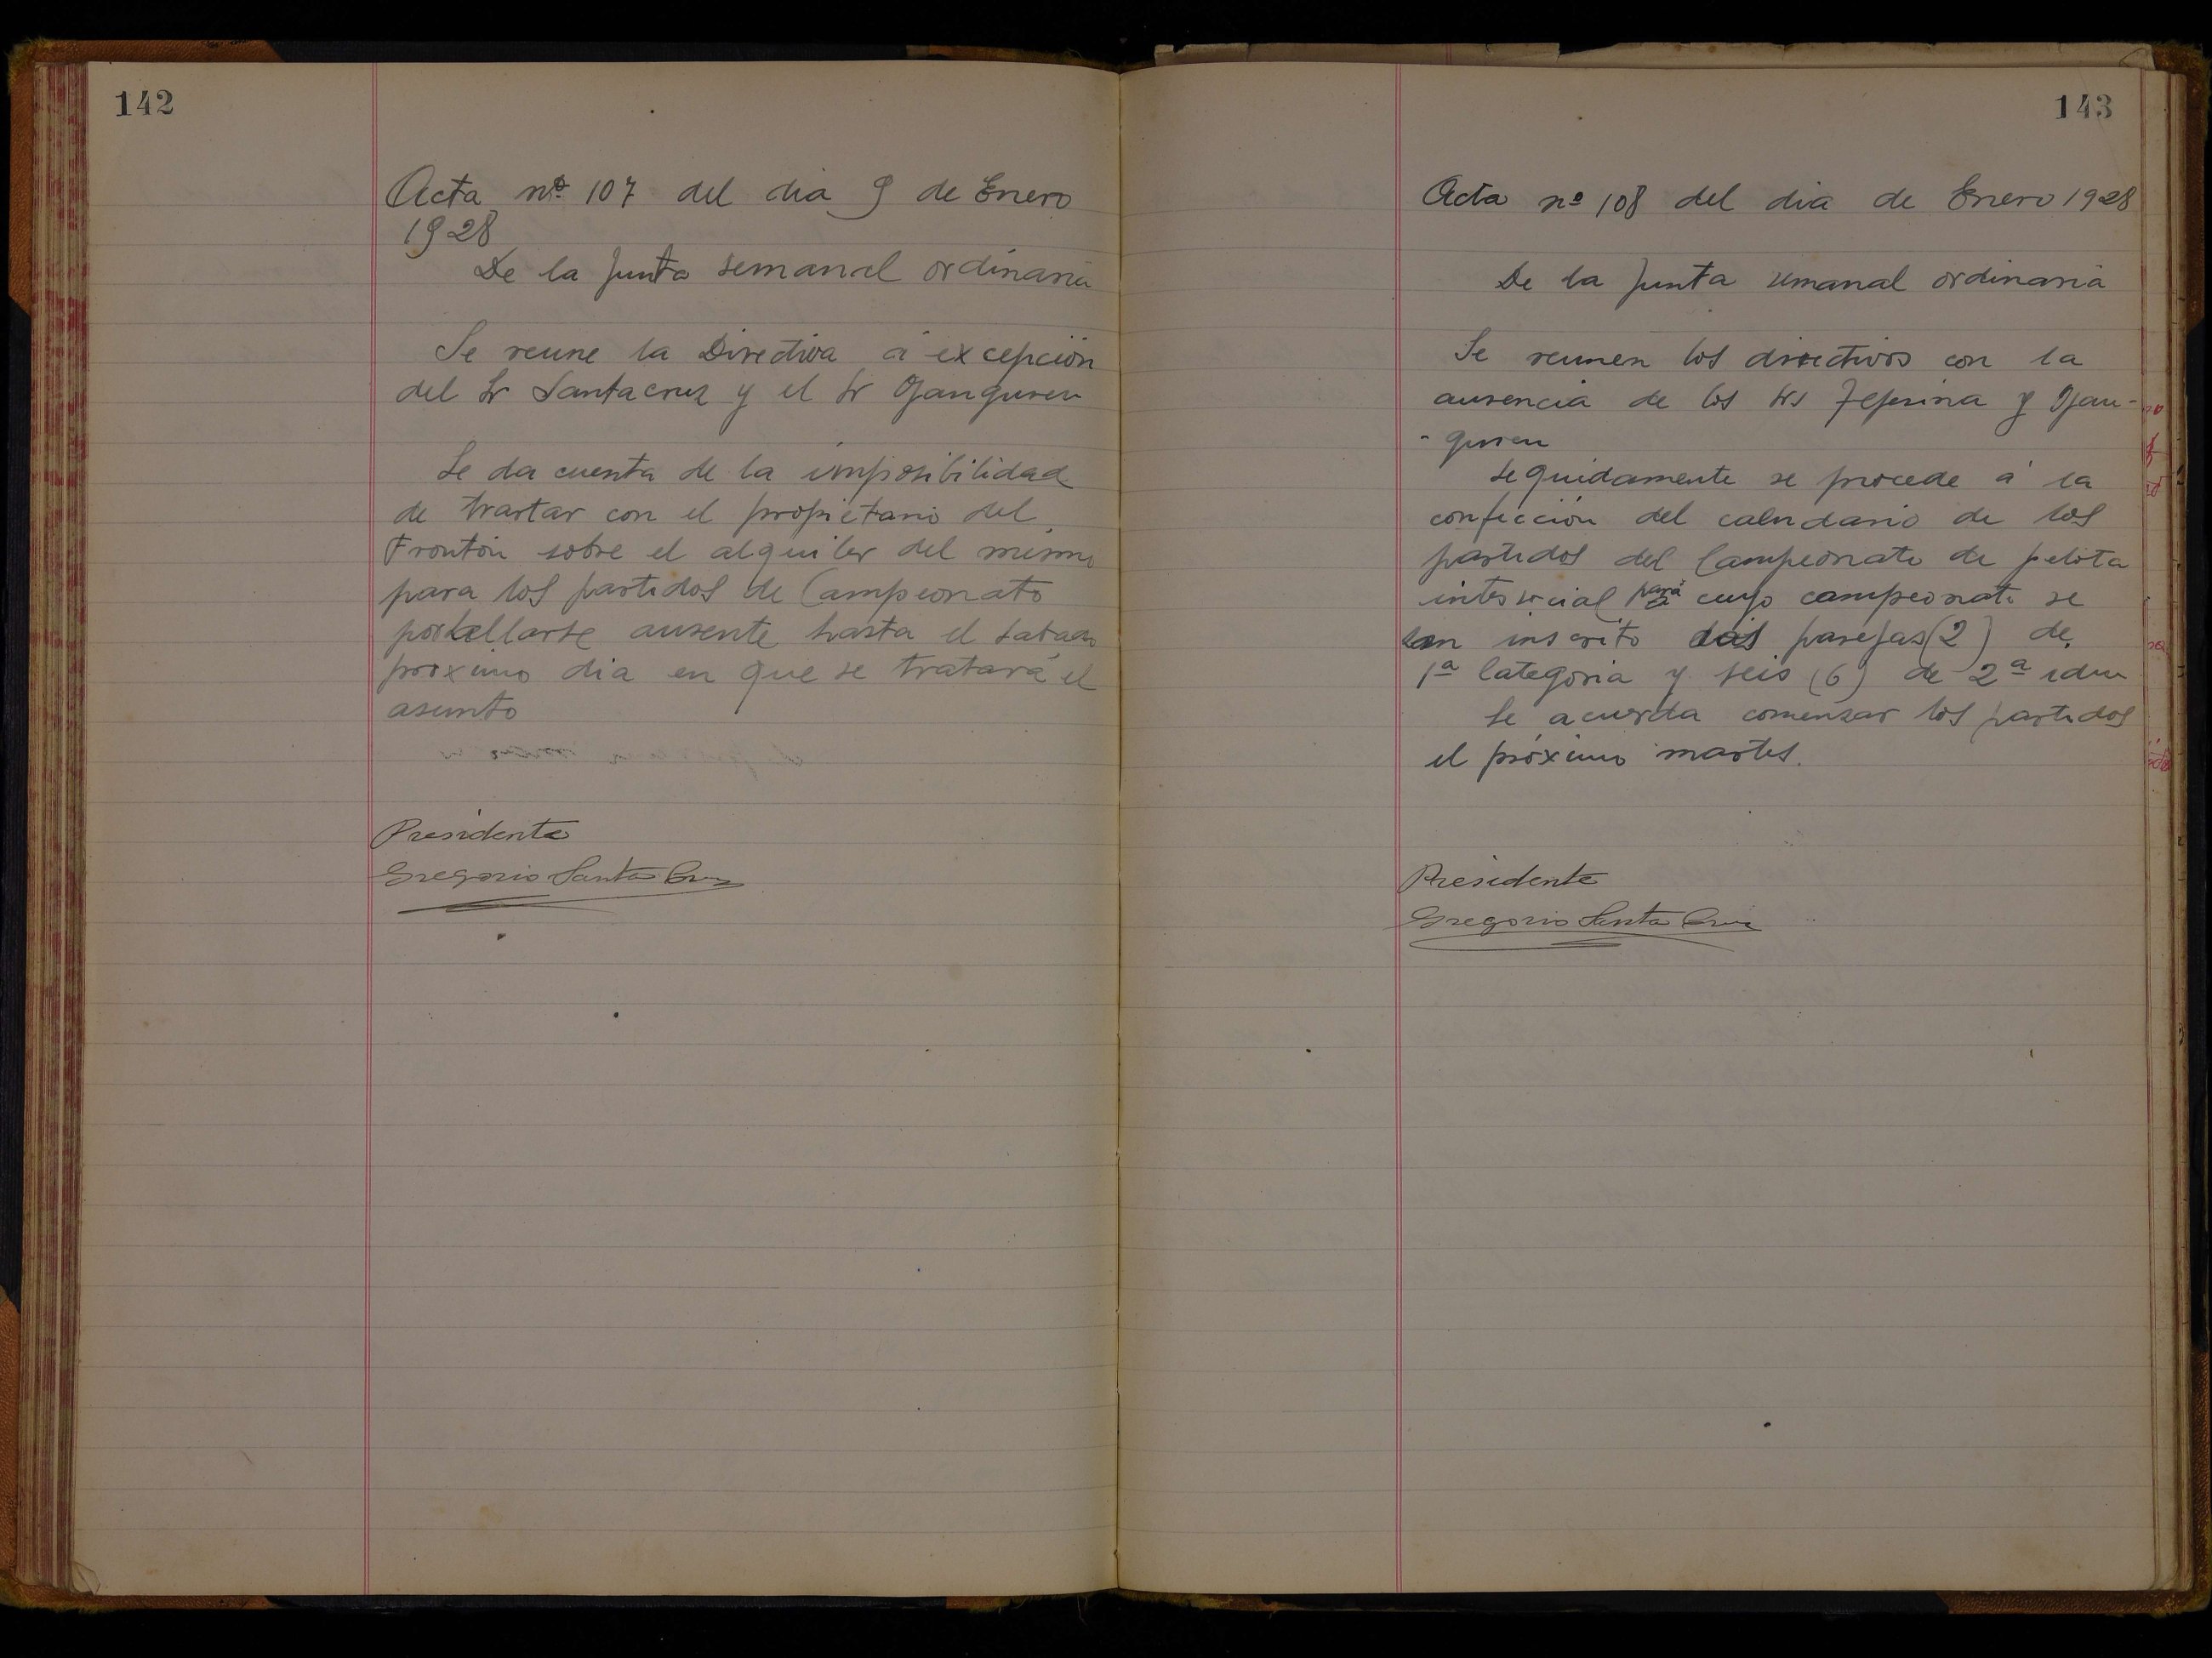 142
Acta nº 107 del dia 9 de Enero
1928
De la Junta semanal ordinaria
Se reune la Directiva á excepción
del Sr Santacruz y el Sr Ojanguren
Se da cuenta de la imposibilidad
de trartar con el propietario del
Frontón sobre el alquiler del mismo
para los partidos de Campeonato
por hallarse ausente hasta el sabado
proximo dia en que se tratará el
asunto
Presidente
Gregorio Santa Cruz
143
Acta nº 108 del dia de Enero 1928
De la Junta semanal ordinaria
Se reunen los directivos con la
ausencia de los Srs y Ojan-
-guren
Seguidamente se procede á la
confección del calendario de los
partidos del Campeonato de pelota
intersocial para cuyo campeonato se
han inscrito dos parejas (2) de
1ª Categoria y seis (6) de 2ª idem
Se acuerda comenzar los partidos
el próximo martes.
Presidente
Gregorio Santa Cruz